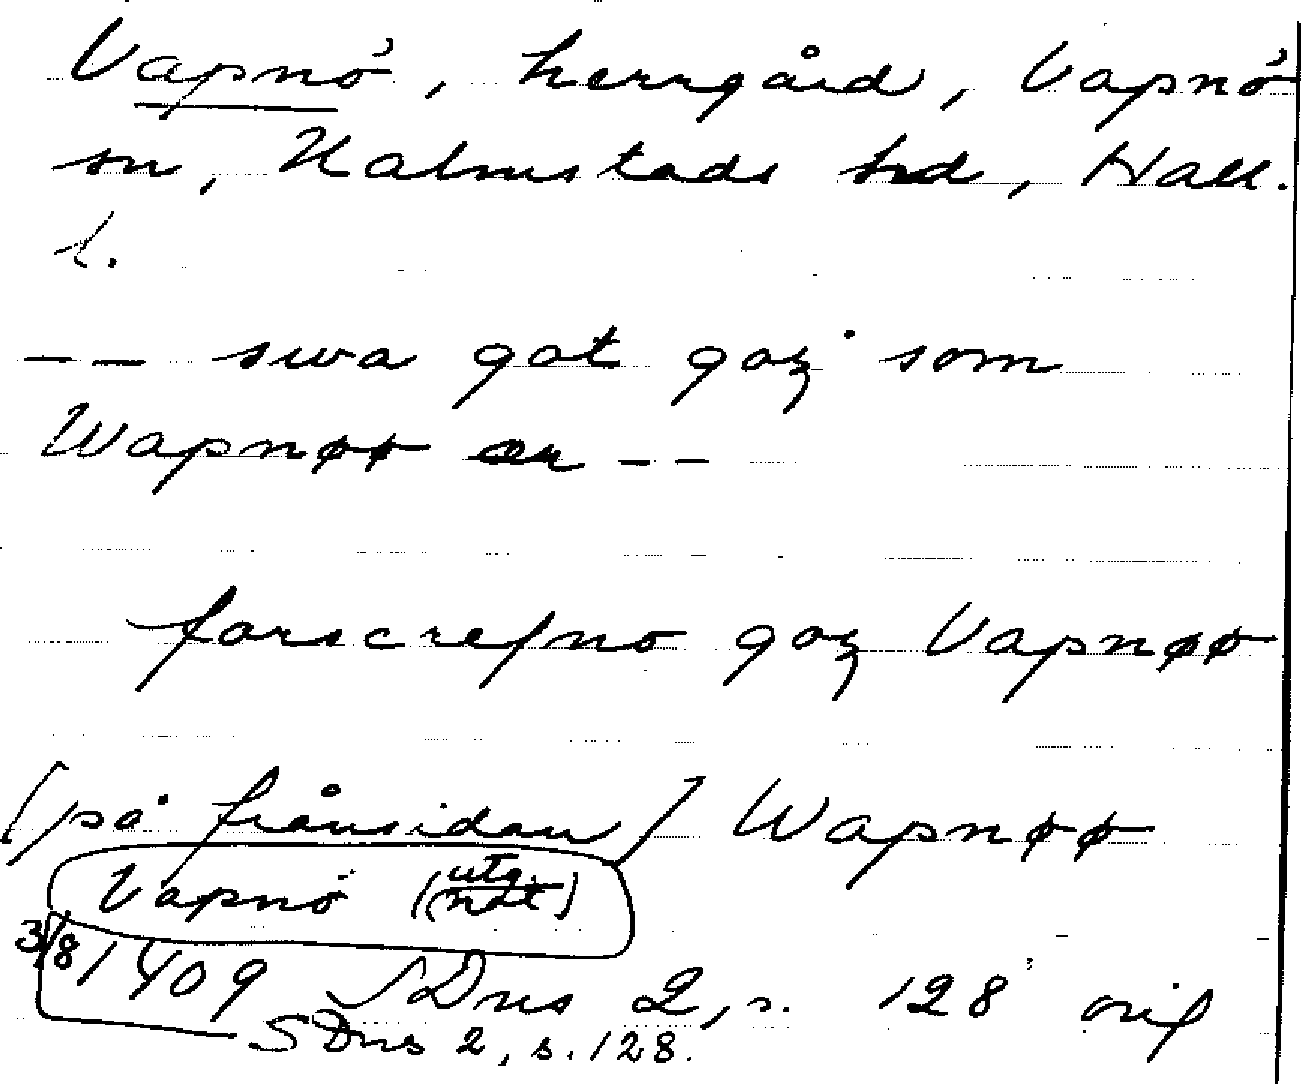 Vapnö, herrgård, Vapnö
sn, Halmstads hd, Hall.
l.
-- swa got goz som
Wapnøø ær --
forscrefno goz Vapnøø
[på frånsidan] Wapnøø
Vapnö (utg. not)
3/8 1409 SDns 2, s. 128 orig
SDns 2, s. 128.